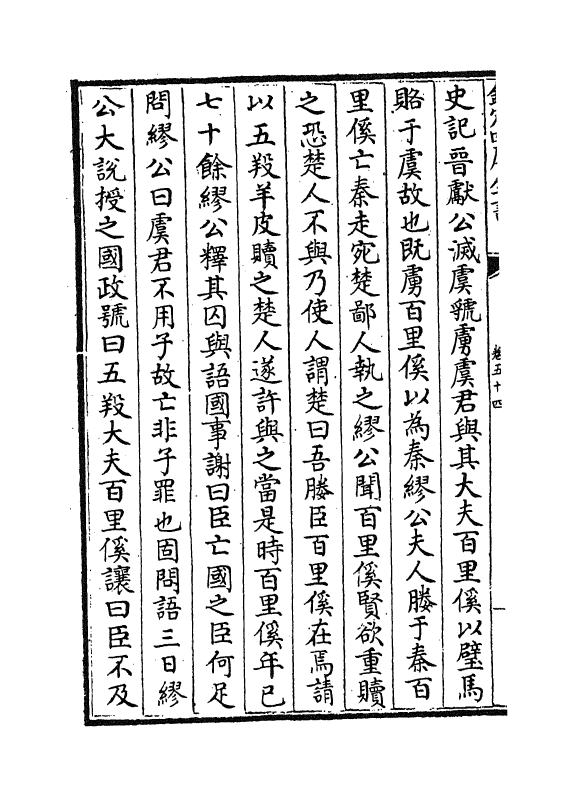 欽定四庫全書
卷五十四
史記晉獻公滅虞虢虜虞君與其大夫百里傒以璧馬
賂于虞故也既虜百里傒以為秦繆公夫人媵于秦百
里傒亡秦走宛楚鄙人執之繆公聞百里傒賢欲重贖
之恐楚人不與乃使人謂楚曰吾媵臣百里傒在焉請
以五羖羊皮贖之楚人遂許與之當是時百里傒年已
七十餘繆公釋其囚與語國事謝曰臣亡國之臣何足
問繆公曰虞君不用子故亡非子罪也固問語三日繆
公大說授之國政號曰五羖大夫百里傒讓曰臣不及